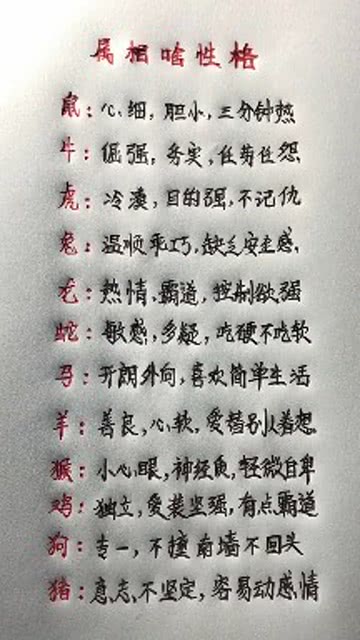 属相啥性格
鼠:心细,胆小,三分钟热
牛:倔强,务实,任劳任怨
虎:冷漠,目的强,不记仇
兔:温顺乖巧,缺乏安全感,
龙:热情、霸道,控制欲强
蛇:敏感,多疑,吃硬不吃软
马:开朗外向,喜欢简单生活
羊:善良,心软,爱替别人着想
猴:小心眼,神经质,轻微自卑
鸡:独立,爱装坚强,有点霸道
狗:专一,不撞南墙不回头
猪:意志不坚定,容易动感情